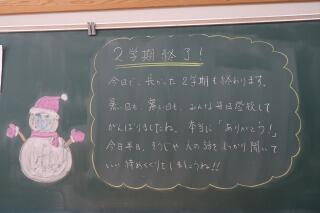 2学期終了!
今日で、長かった2学期も終わります。
暑い日も、寒い日も、みんな毎日登校して
がんばりましたね。本当に「ありがとう!」
今日半日、そうじや人の話をしっかり聞いて
いい締めくくりをしましょうね!!